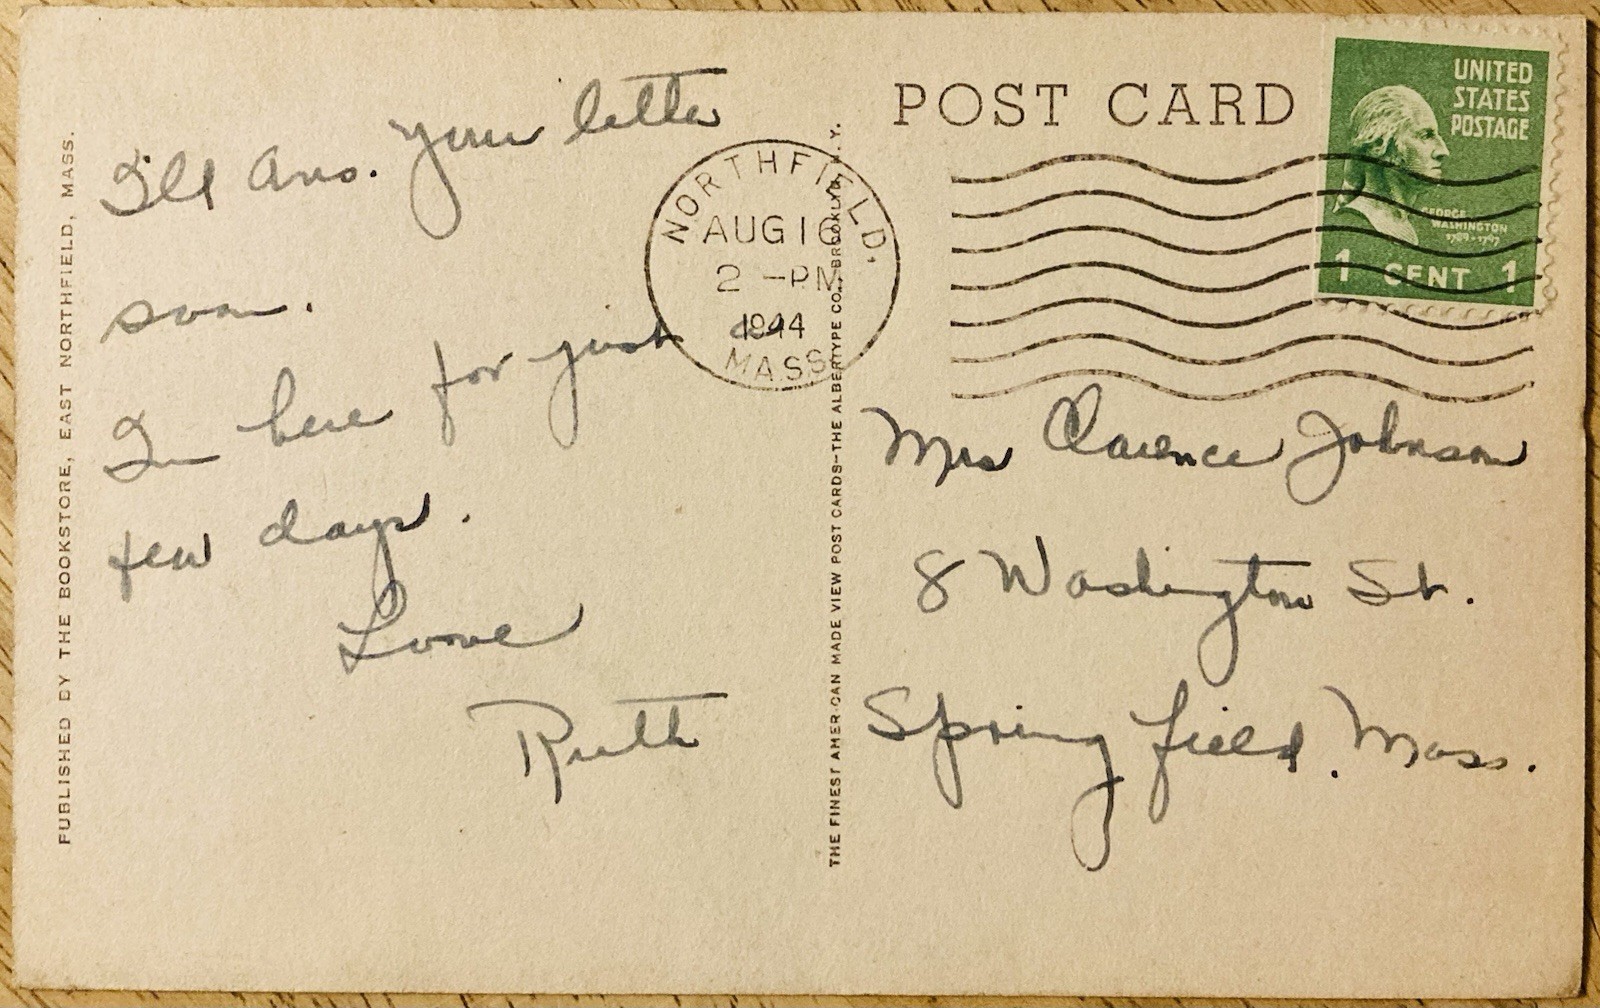 PUBLISHED BY THE BOOKSTORE, EAST NORTHFIELD, MASS.
I'll Ans. your letter
soon.
I'm here for just a
few days.
Love
Ruth
NORTHFIELD,
AUG 16
2 -PM
1944
MASS
THE FINEST AMERICAN MADE VIEW POST CARDS—THE ALBERTYPE CO., BROOKLYN, N.Y.
POST CARD
UNITED
STATES
POSTAGE
GEORGE
WASHINGTON
1789-1797
1 CENT 1
Mrs Clarence Johnson
8 Washington St.
Springfield. Mass.